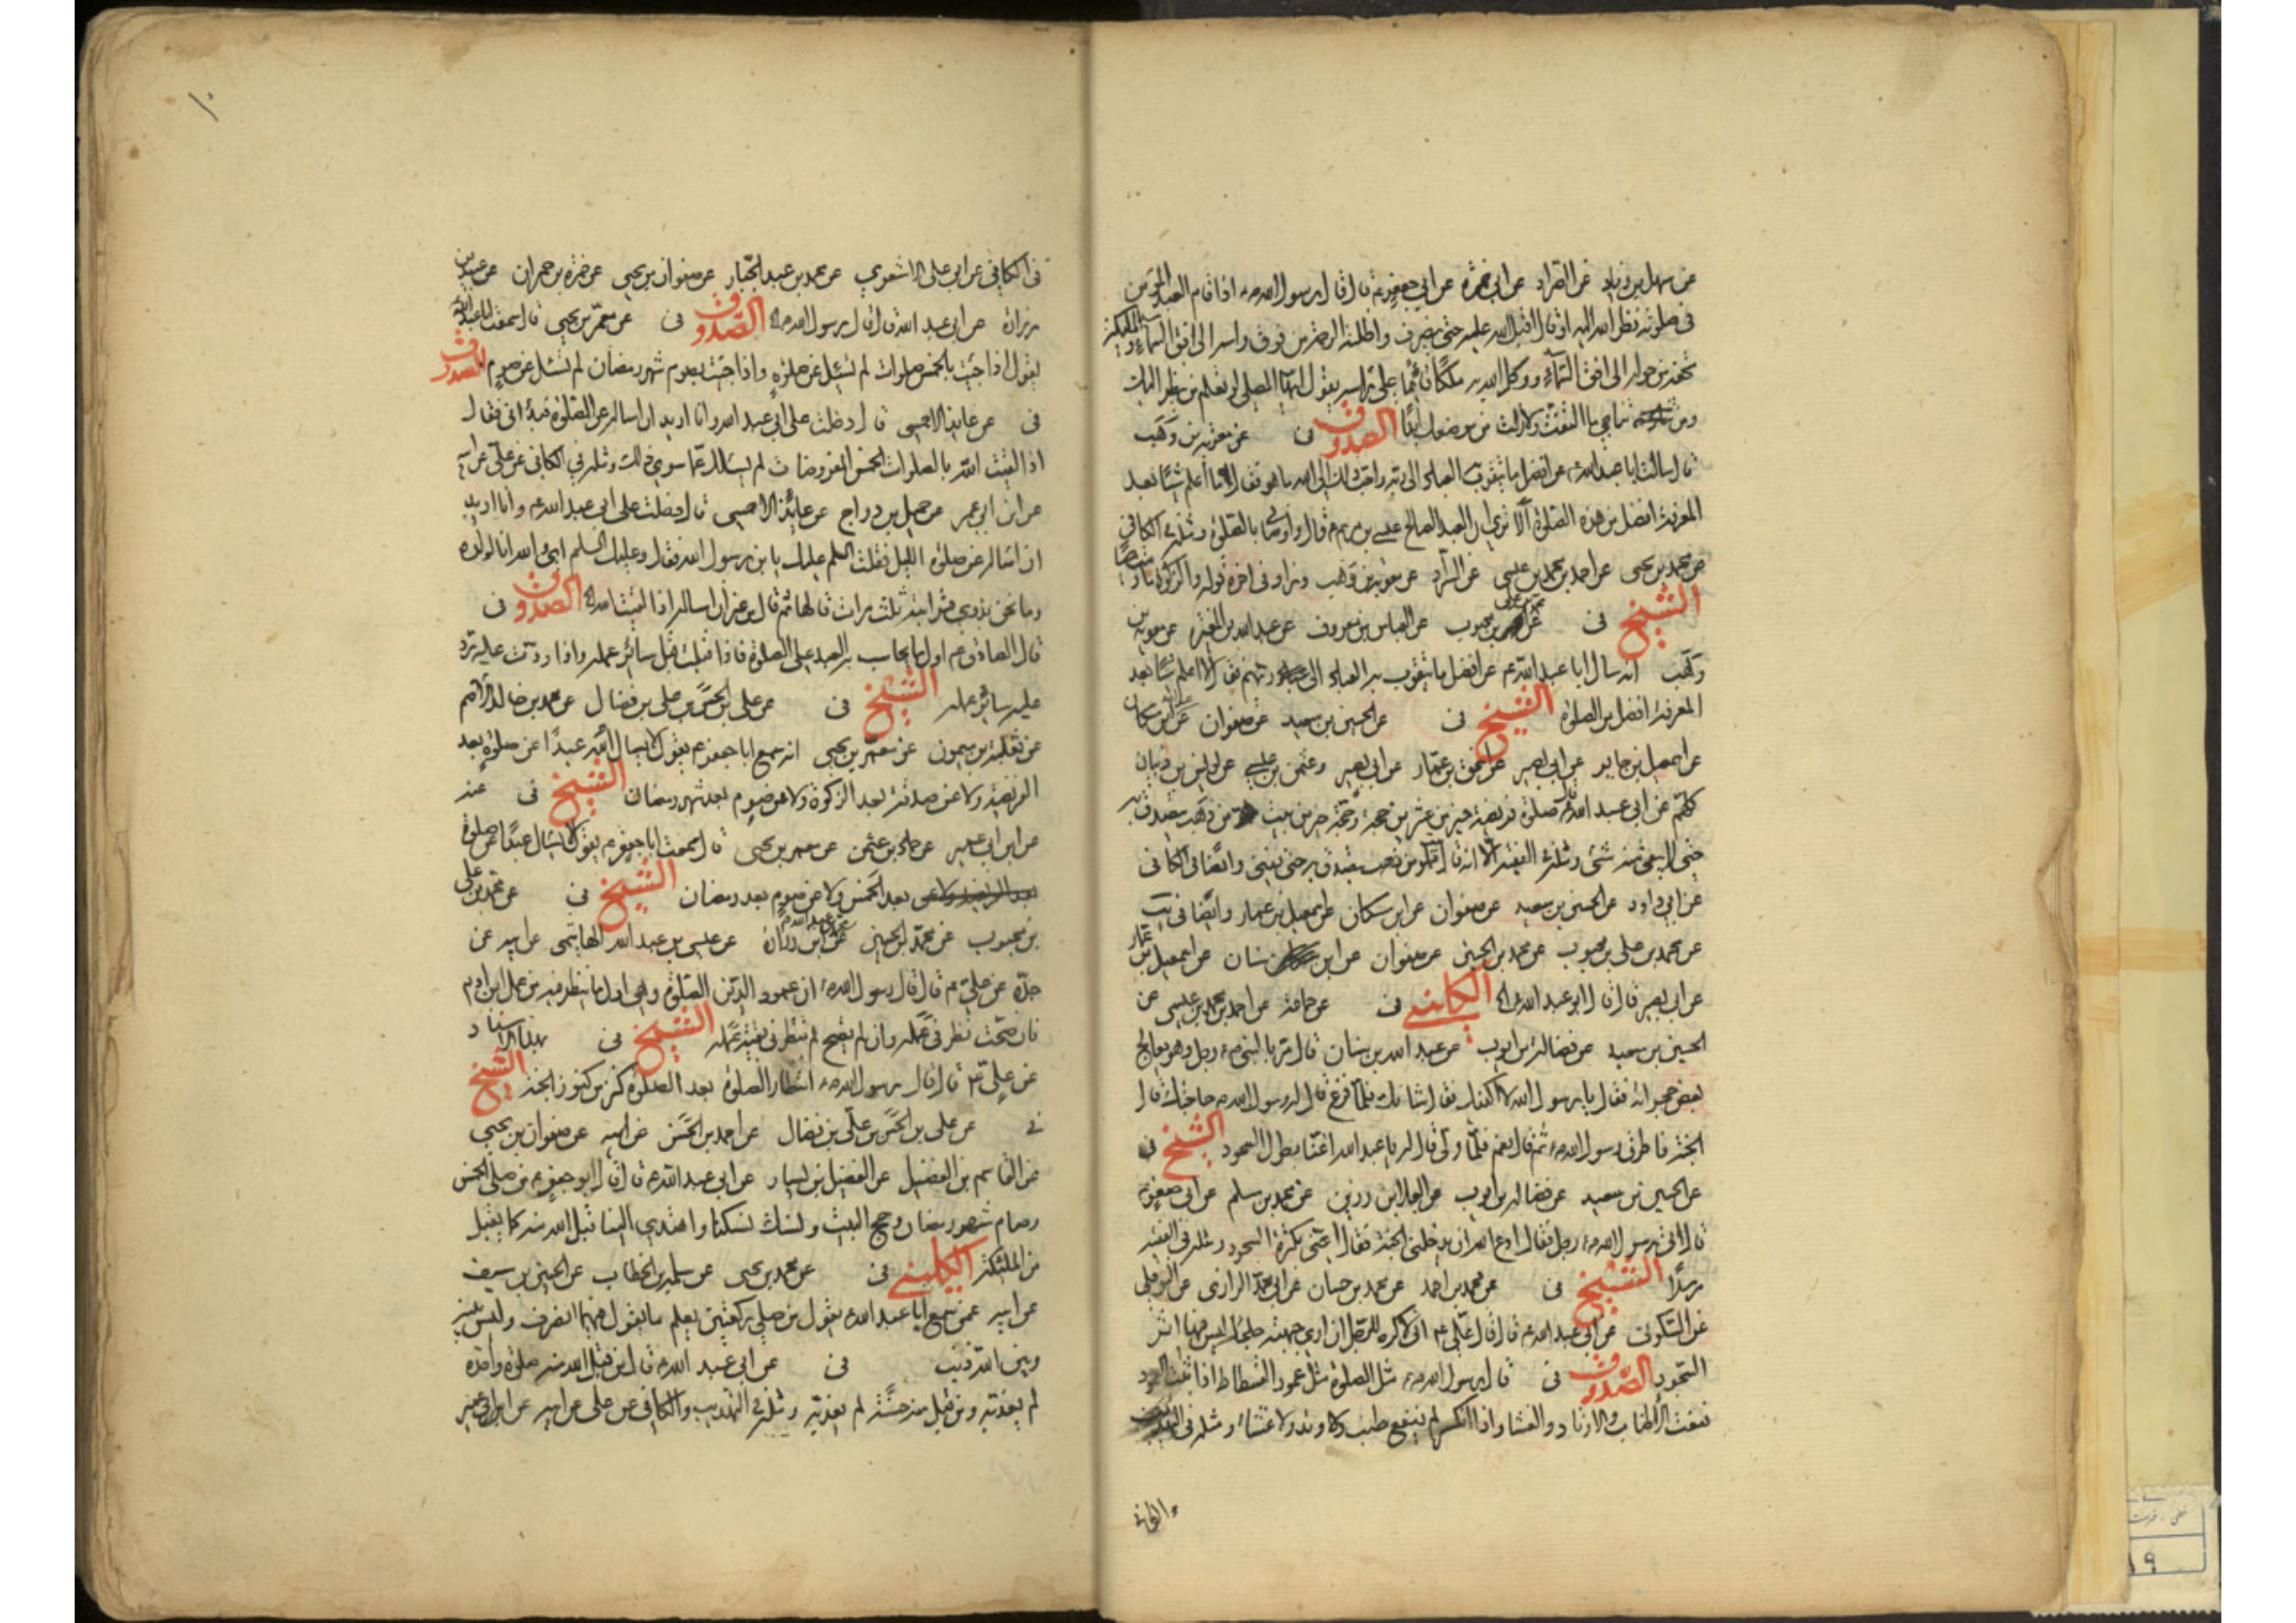 عن سهل بن زياد عن السراد عن ابى حمزة عن ابى جعفر ع قال قال رسول الله ص اذا قام العبد المؤمن
فى صلوته نظر الله اليه او قال اقبل الله عليه حتى ينصرف واظلته الرحمة من فوق راسه الى افق السماء والملئكة
تحفه من حوله الى افق السماء ووكل الله به ملكا قائما على راسه يقول ايها المصلى لو تعلم من ينظر اليك
ومن تناجى ما التفت ولا زلت من موضعك ابدا الصدوق فى عن معوية بن وهب
قال سالت ابا عبد الله ع عن افضل ما يتقرب العباد الى ربهم واحب ذلك الى الله ما هو فقال ما اعلم شيئا بعد
المعرفة افضل من هذه الصلوة الا ترى ان العبد الصالح عيسى بن مريم ع قال واوصانى بالصلوة ومثله فى الكافى
عن محمد بن يحيى عن احمد بن محمد بن عيسى عن السراد عن معوية بن وهب وزاد فى اخره قوله والزكوة ما دمت حيا
الشيخ فى عن محمد بن على بن محبوب عن العباس بن معروف عن عبد الله بن المغيرة عن معوية بن
وهب انه سال ابا عبد الله ع عن افضل ما يتقرب به العباد الى ربهم فقال لا اعلم شيئا بعد
المعرفة افضل من الصلوة الشيخ فى عن الحسين بن سعيد عن صفوان عن عبد الله بن مسكان
عن اسمعيل بن جابر عن ابى بصير عن اسحق بن عمار عن ابى بصير وعثمن بن عيسى عن يونس بن ظبيان
كلهم عن ابى عبد الله ع قال صلوة فريضة خير من عشرين حجة وحجة خير من بيت من ذهب يتصدق به
حتى لا يبقى منه شئ ومثله فى الفقيه الا انه قال مملو من ذهب يتصدق به حتى يفنى وايضا فى الكافى
عن ابى داود عن الحسين بن سعيد عن صفوان عن ابن مسكان عن اسمعيل بن عمار وايضا فى يب
عن محمد بن على بن محبوب عن محمد بن الحسين عن صفوان عن ابن سنان عن اسمعيل بن عمار
عن ابى بصير قال قال ابو عبد الله ع الكلينى فى عن جماعة عن احمد بن محمد بن عيسى عن
الحسين بن سعيد عن فضالة بن ايوب عن عبد الله بن سنان قال مر بالنبى ص رجل وهو يعالج
بعض حجراته فقال يا رسول الله الا اكفيك فقال شانك فلما فرغ قال له رسول الله ص حاجتك قال
الجنة فاطرق رسول الله ص ثم قال نعم فلما ولى قال له يا عبد الله اعنا بطول السجود الشيخ فى
عن الحسين بن سعيد عن فضالة بن ايوب عن العلا بن رزين عن محمد بن مسلم عن ابى جعفر ع
قال اتى رسول الله ص رجل فقال ادع الله ان يدخلنى الجنة فقال اعنى بكثرة السجود ومثله فى الفقيه
مرسلا الشيخ فى عن محمد بن احمد عن محمد بن حسان عن ابى محمد الرازى عن النوفلى
عن السكونى عن ابى عبد الله ع قال قال على ع انى لاكره للرجل ان ارى جبهته جلحاء ليس فيها اثر
السجود الصدوق فى قال رسول الله ص مثل الصلوة مثل عمود الفسطاط اذا ثبت العمود
نفعت الاطناب والاوتاد والغشا واذا انكسر لم ينفع طنب ولا وتد ولا غشاء ومثله فى التهذيب
والكافى
١٠
فى الكافى عن ابى على الاشعرى عن محمد بن عبد الجبار عن صفوان بن يحيى عن حمزة بن حمران عن عبيد بن
زرارة عن ابى عبد الله قال قال رسول الله ص الصدوق فى عن معمر بن يحيى قال سمعت ابا عبد الله
يقول اذا جئت بالخمس صلوات لم تسئل عن صلوة واذا جئت بصوم شهر رمضان لم تسئل عن صوم الصدوق
فى عن عايذ الاحمسى قال دخلت على ابى عبد الله وانا اريد ان اساله عن الصلوة فبدأنى فقال
اذا لقيت الله بالصلوات الخمس المفروضات لم يسئلك عما سوى ذلك ومثله فى الكافى عن على عن ابيه
عن ابن ابى عمير عن جميل بن دراج عن عائذ الاحمسى قال دخلت على ابى عبد الله ع وانا اريد
ان اساله عن صلوة الليل فقلت السلم عليك يا بن رسول الله فقال وعليك السلم اى والله انا لولده
وما نحن بذوى قرابته ثلث مرات قالها ثم قال من غير ان اساله اذا لقيت الله الصدوق فى
قال الصادق ع اول ما يحاسب به العبد على الصلوة فاذا قبلت قبل سائر عمله واذا ردت عليه رد
عليه سائر عمله الشيخ فى عن على بن الحسن بن على بن فضال عن محمد بن خالد الاصم
عن ثعلبة بن ميمون عن معمر بن يحيى انه سمع ابا جعفر ع يقول لا يسال الله عبدا عن صلوة بعد
الفريضة ولا عن صدقة بعد الزكوة ولا عن صوم بعد شهر رمضان الشيخ فى عنه
عن ابن ابى عمير عن حماد بن عثمن عن معمر بن يحيى قال سمعت ابا جعفر ع يقول لا يسال عبدا عن صلوة
بعد الخمس ولا عن صوم بعد رمضان الشيخ فى عن محمد بن على
بن محبوب عن محمد بن الحسين عن ابن زرارة عن عيسى بن عبد الله الهاشمى عن ابيه عن
جده عن على ع قال قال رسول الله ص ان عمود الدين الصلوة وهى اول ما ينظر فيه من عمل ابن ادم
فان صحت نظر فى عمله وان لم تصح لم ينظر فى بقية عمله الشيخ فى بهذا الاسناد
عن على ع قال قال رسول الله ص انتظار الصلوة بعد الصلوة كنز من كنوز الجنة الشيخ
فى عن على بن الحسن بن على بن فضال عن احمد بن الحسن عن ابيه عن صفوان بن يحيى
عن القاسم بن الفضيل عن الفضيل بن يسار عن ابى عبد الله ع قال قال ابو جعفر ع من صلى الخمس
وصام شهر رمضان وحج البيت ونسك نسكنا واهتدى الينا قبل الله منه كما يقبل
من الملئكة الكلينى فى عن محمد بن يحيى عن سلمة بن الخطاب عن الحسين بن سيف
عن ابيه عمن سمع ابا عبد الله ع يقول من صلى ركعتين يعلم ما يقول فيهما انصرف وليس بينه
وبين الله ذنب فى عن ابى عبد الله ع قال من قبل الله منه صلوة واحدة
لم يعذبه ومن قبل منه حسنة لم يعذبه ومثله فى التهذيب والكافى عن على عن ابيه عن ابن ابى عمير